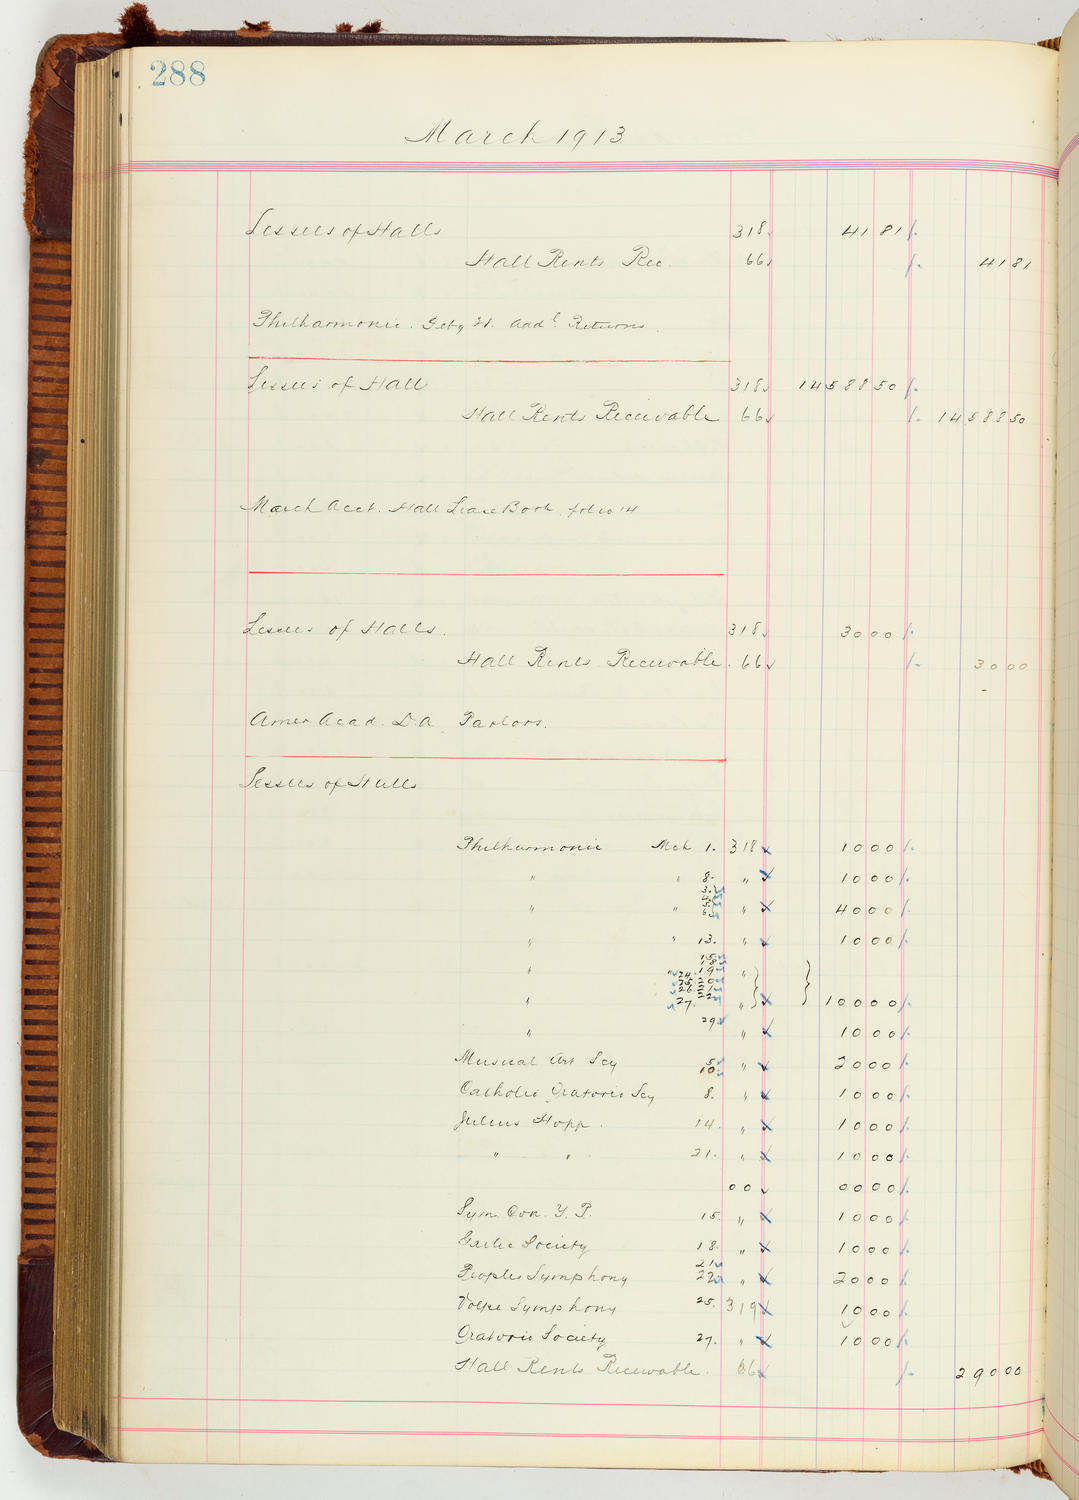 288
March 1913
Lessees of Halls 318 41 81
Hall Rents Rec. 66 41 81
Philharmonic. Feby addl Returns
Lessees of Hall 318 14588 50
Hall Rents Receivable 66 14588 50
March Acct. Hall Lease Book, folio 14
Lessees of Halls. 318 30 00
Hall Rents Receivable. 66 30 00
Amer Acad. D.A. Parlors.
Lessees of Halls
Philharmonic Mch 1. 318 10 00
" " 8. " 10 00
" " 3. 4. 5. 6. " 40 00
" " 13. " 10 00
" " 15. 18. 24. 19 "
25. 20
26. 21
" 27. 22 " 100 00
" 29 " 10 00
Musical Art Scy 5 10. " 20 00
Catholic Oratorio Scy 8. " 10 00
Julius Hopp. 14. " 10 00
" " 21. " 10 00
00 00 00
Sym. Con. Y. P. 15. " 10 00
Gaelic Society 18. " 10 00
21
Peoples Symphony 22 " 20 00
Volpe Symphony 25. 319 10 00
Oratorio Society 27. " 10 00
Hall Rents Receivable. 66 290 00